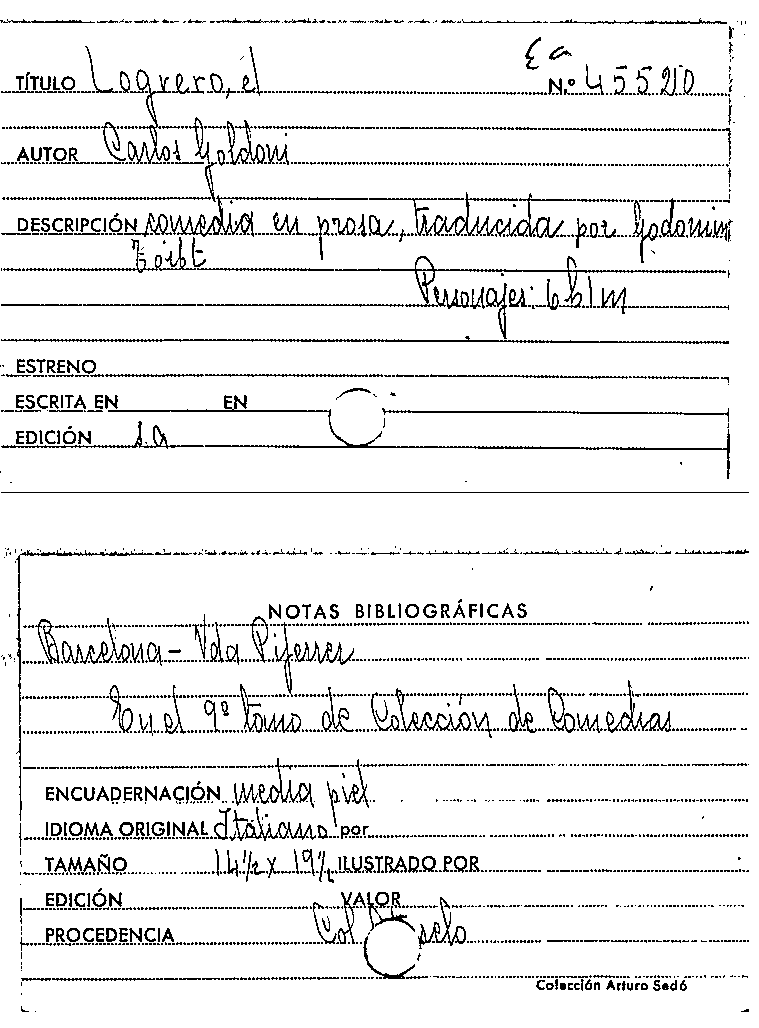 Ea
TÍTULO Logrero, el N.º 45520
AUTOR Carlos Goldoni
DESCRIPCIÓN comedia en prosa, traducida por
Personajes: 6 h 1 m
ESTRENO
ESCRITA EN EN
EDICIÓN s.a
NOTAS BIBLIOGRÁFICAS
Barcelona - Vda Piferrer
En el 9º tomo de Colección de Comedias
ENCUADERNACIÓN media piel
IDIOMA ORIGINAL Italiano por
TAMAÑO 14½ x 19½ ILUSTRADO POR
EDICIÓN VALOR
PROCEDENCIA Col
Colección Arturo Sedó